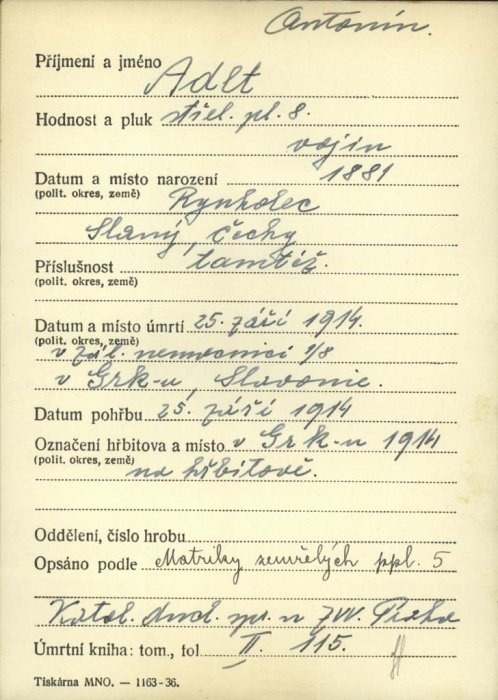 Antonín.
Příjmení a jméno Adlt
Hodnost a pluk střel. pl. 8.
vojín
Datum a místo narození 1881
(polit. okres, země) Rynholec
Slaný, Čechy
Příslušnost tamtéž.
(polit. okres, země)
Datum a místo úmrtí 25. září 1914.
(polit. okres, země) v zál. nemocnici 1/8
v Grk-u, Slavonie.
Datum pohřbu 25. září 1914
Označení hřbitova a místo v Grk-u 1914
(polit. okres, země) na hřbitově.
Oddělení, číslo hrobu
Opsáno podle Matriky zemřelých ppl. 5
Katol. duch. spr. u ZVV. Praha
Úmrtní kniha: tom., fol II. 115.
Tiskárna MNO. — 1163-36.